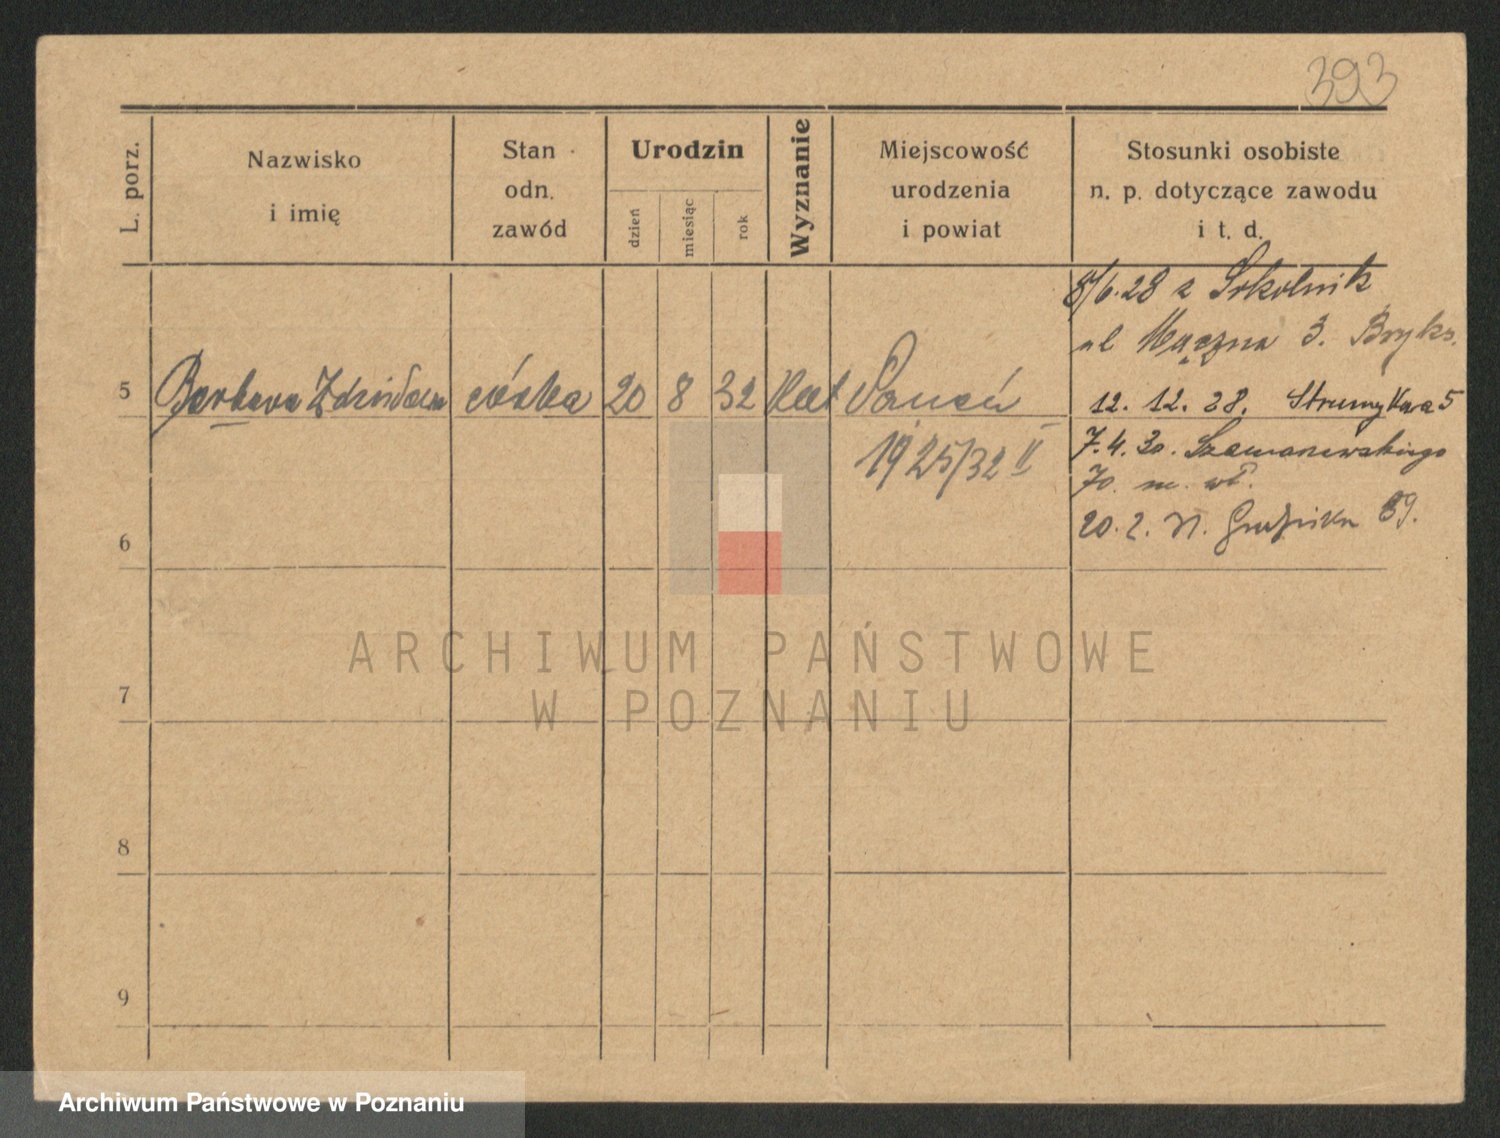 393
L. porz.
Nazwisko
i imię
Stan
odn.
zawód
Urodzin
dzień
miesiąc
rok
Wyznanie
Miejscowość
urodzenia
i powiat
Stosunki osobiste
n. p. dotyczące zawodu
i t. d.
8/6.28 z Sokolnik
ul Mączna 3. Bryks.
5 Barbara córka 20 8 32 Kat Poznań
12. 12. 28. Strumykowa 5
1925/32 II
7.4.30. Szamarzewskiego
70 m. wł.
6
20. 2. 89.
ARCHIWUM PAŃSTWOWE
W POZNANIU
7
8
9
Archiwum Państwowe w Poznaniu